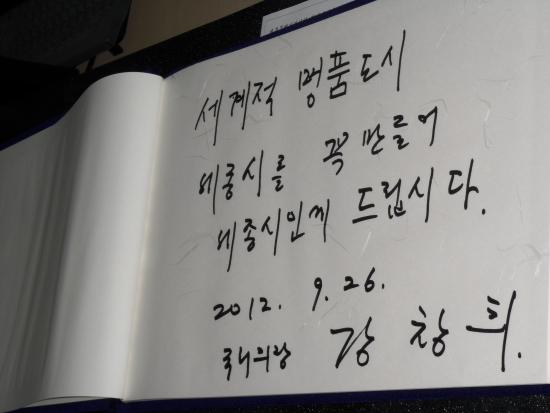 세계적 명품도시
세종시를 꼭 만들어
세종시민께 드립시다.
2012. 9. 26.
국회의장 강 창 희.